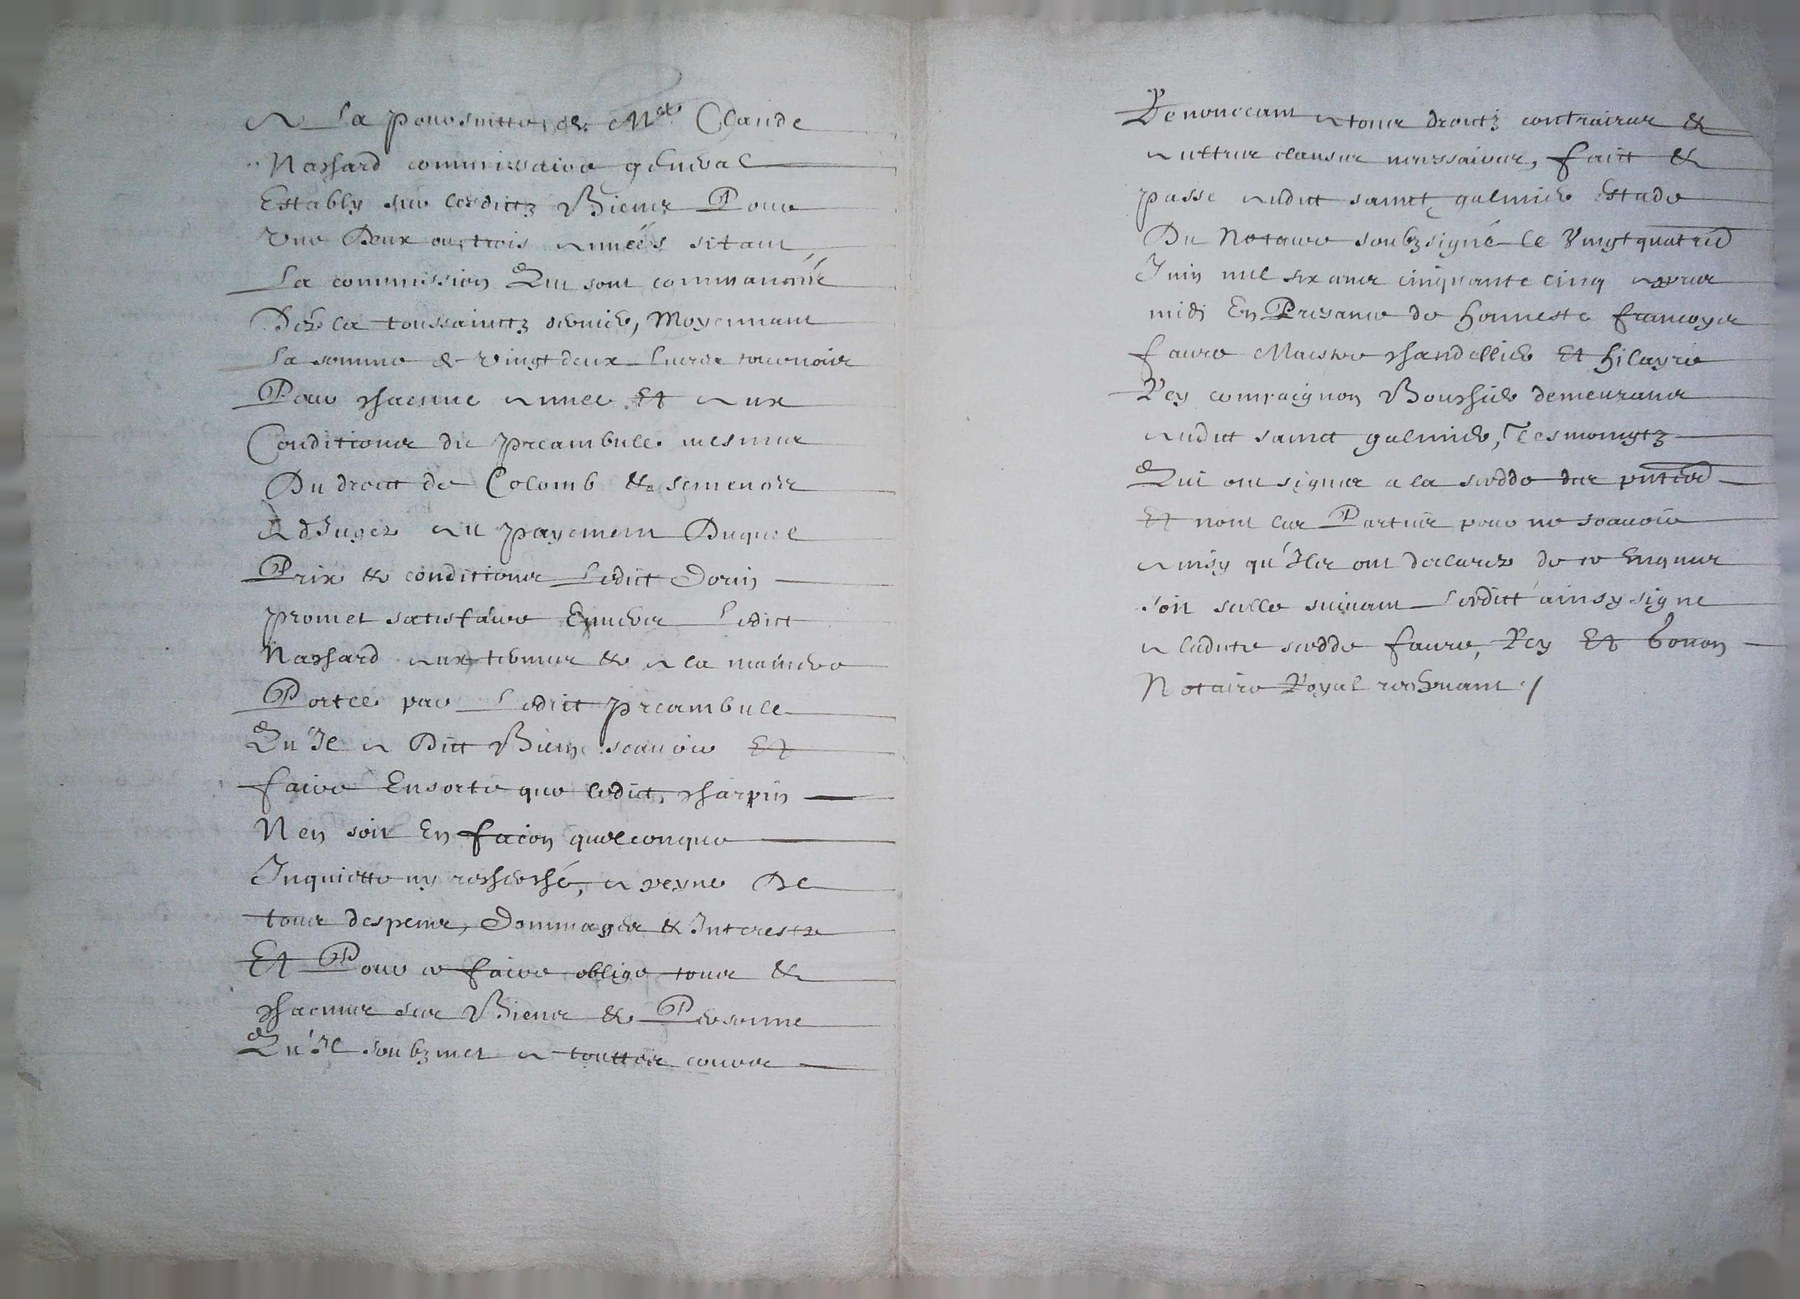 A La poursuitte de Mre Claude
Nashard commissaire general
Estably sur lesdictz Biens Pour
Une Deux ou trois années sitant
La commission Qui sont commancée
Dez la toussainctz dernier, Moyennant
La somme de vingt deux Livres tournois
Pour chacune annee Et aux
Conditions du preambule mesmes
Du droict de Colomb & semenées
Adjuger au payement Duquel
Prix & conditions Ledict Dorin
promet satisfaire Envers Ledict
Nashard aux termes & a la maniere
Portee par Ledict preambule
Qu'Il a Dict Bien scauoir Et
faire Ensorte que ledict charpin
N en soit En facon quelconque
Inquietté ny recherché, a peyne De
tous despens, Dommages & Interestz
Et Pour ce faire oblige tous &
chacuns ses Biens & Personne
Qu'Il soubzmet a touttes cours
Renonceant a tous droictz contraires &
aultres clauses necessaires, faict &
passé audict sainct galmier Estude
Du Notaire soubzsigné le Vingtquatried
Juin mil six cens cinquante cinq apres
midi En Presance de honneste francoys
faure Maistre chandellier Et hilayre
Rey compaignon Bourchier demeurans
audict sainct galmier, Tesmoingtz
Qui ont signes a la cedde des pntes
Et nont les Parties pour ne scauoir
ainsy qu'Ilz ont declarez de ce Enquis
soit scelle suiuant Ledict ainsy signe
a ladicte cedde faure, Rey Et bonon
Notaire Royal recepuant ./